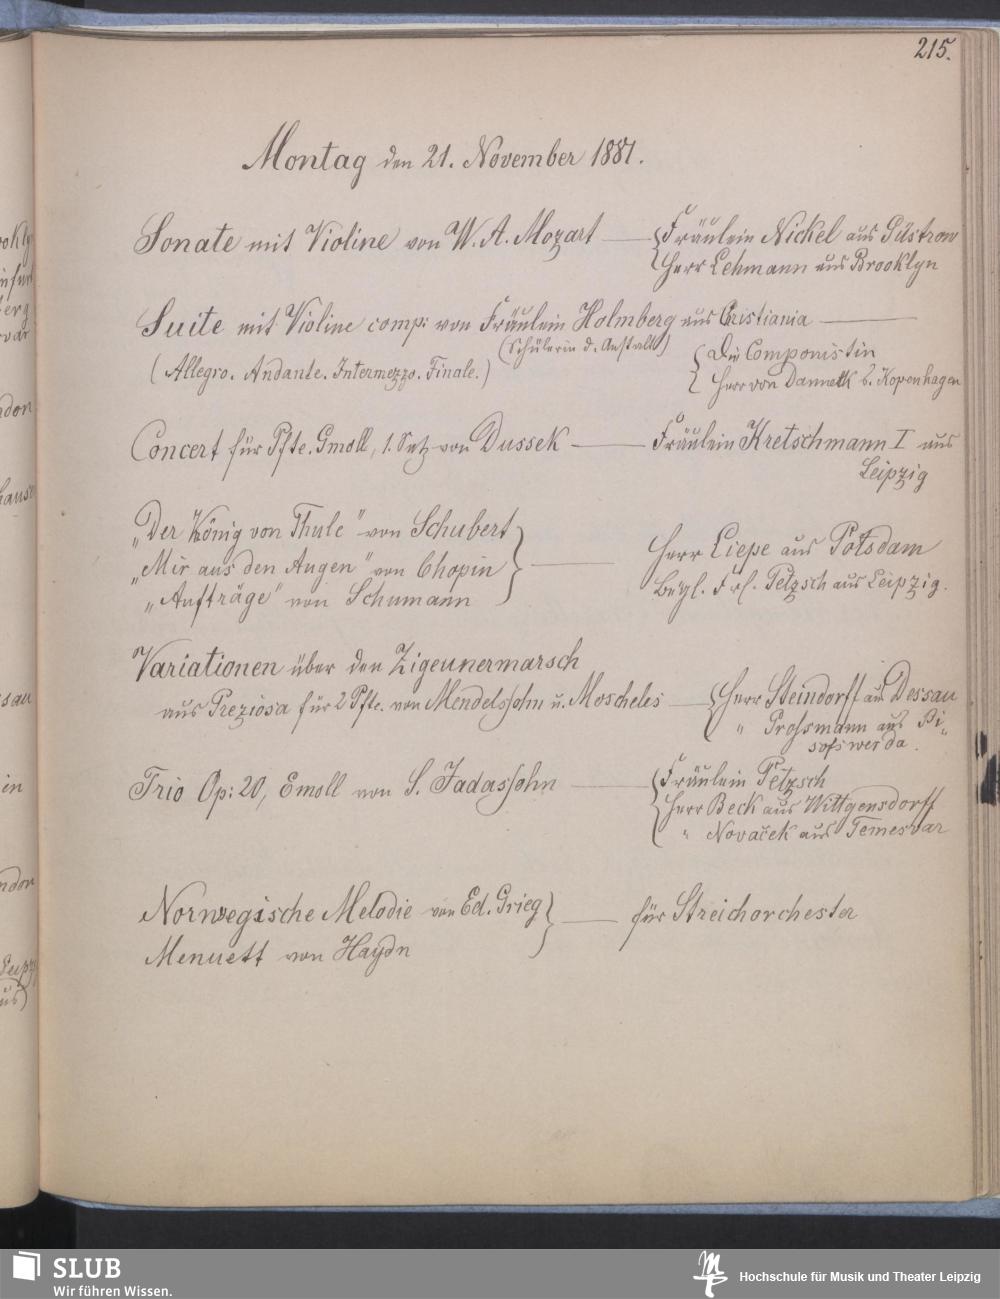 215.
Montag den 21. November 1881.
Sonate mit Violine von W. A. Mozart — Fräulein Nickel aus Güstrow
Herr Lehmann aus Brooklyn
Suite mit Violine comp: von Fräulein Holmberg aus Cristiania —
(Schülerin d. Anstalt)
(Allegro. Andante. Intermezzo. Finale.)
Die Componistin
Herr von Dameck b. Kopenhagen
Concert für Pfte. Gmoll, 1. Satz von Dussek — Fräulein Kretschmann I aus
Leipzig
„Der König von Thule" von Schubert
„Mir aus den Augen" von Chopin
„Aufträge" von Schumann
Herr Liepe aus Potsdam
Begl. Frl. Petzsch aus Leipzig.
Variationen über den Zigeunermarsch
aus Preziosa für 2 Pfte. von Mendelssohn u. Moscheles — Herr Steindorff aus Dessau
" Grossmann aus Bi-
sofswerda.
Trio Op: 20, Emoll von S. Jadassohn — Fräulein Petzsch
Herr Beck aus Wittgensdorff
" Novaček aus Temesvar
Norwegische Melodie von Ed. Grieg — für Streichorchester
Menuett von Haydn
SLUB
Wir führen Wissen.
Hochschule für Musik und Theater Leipzig